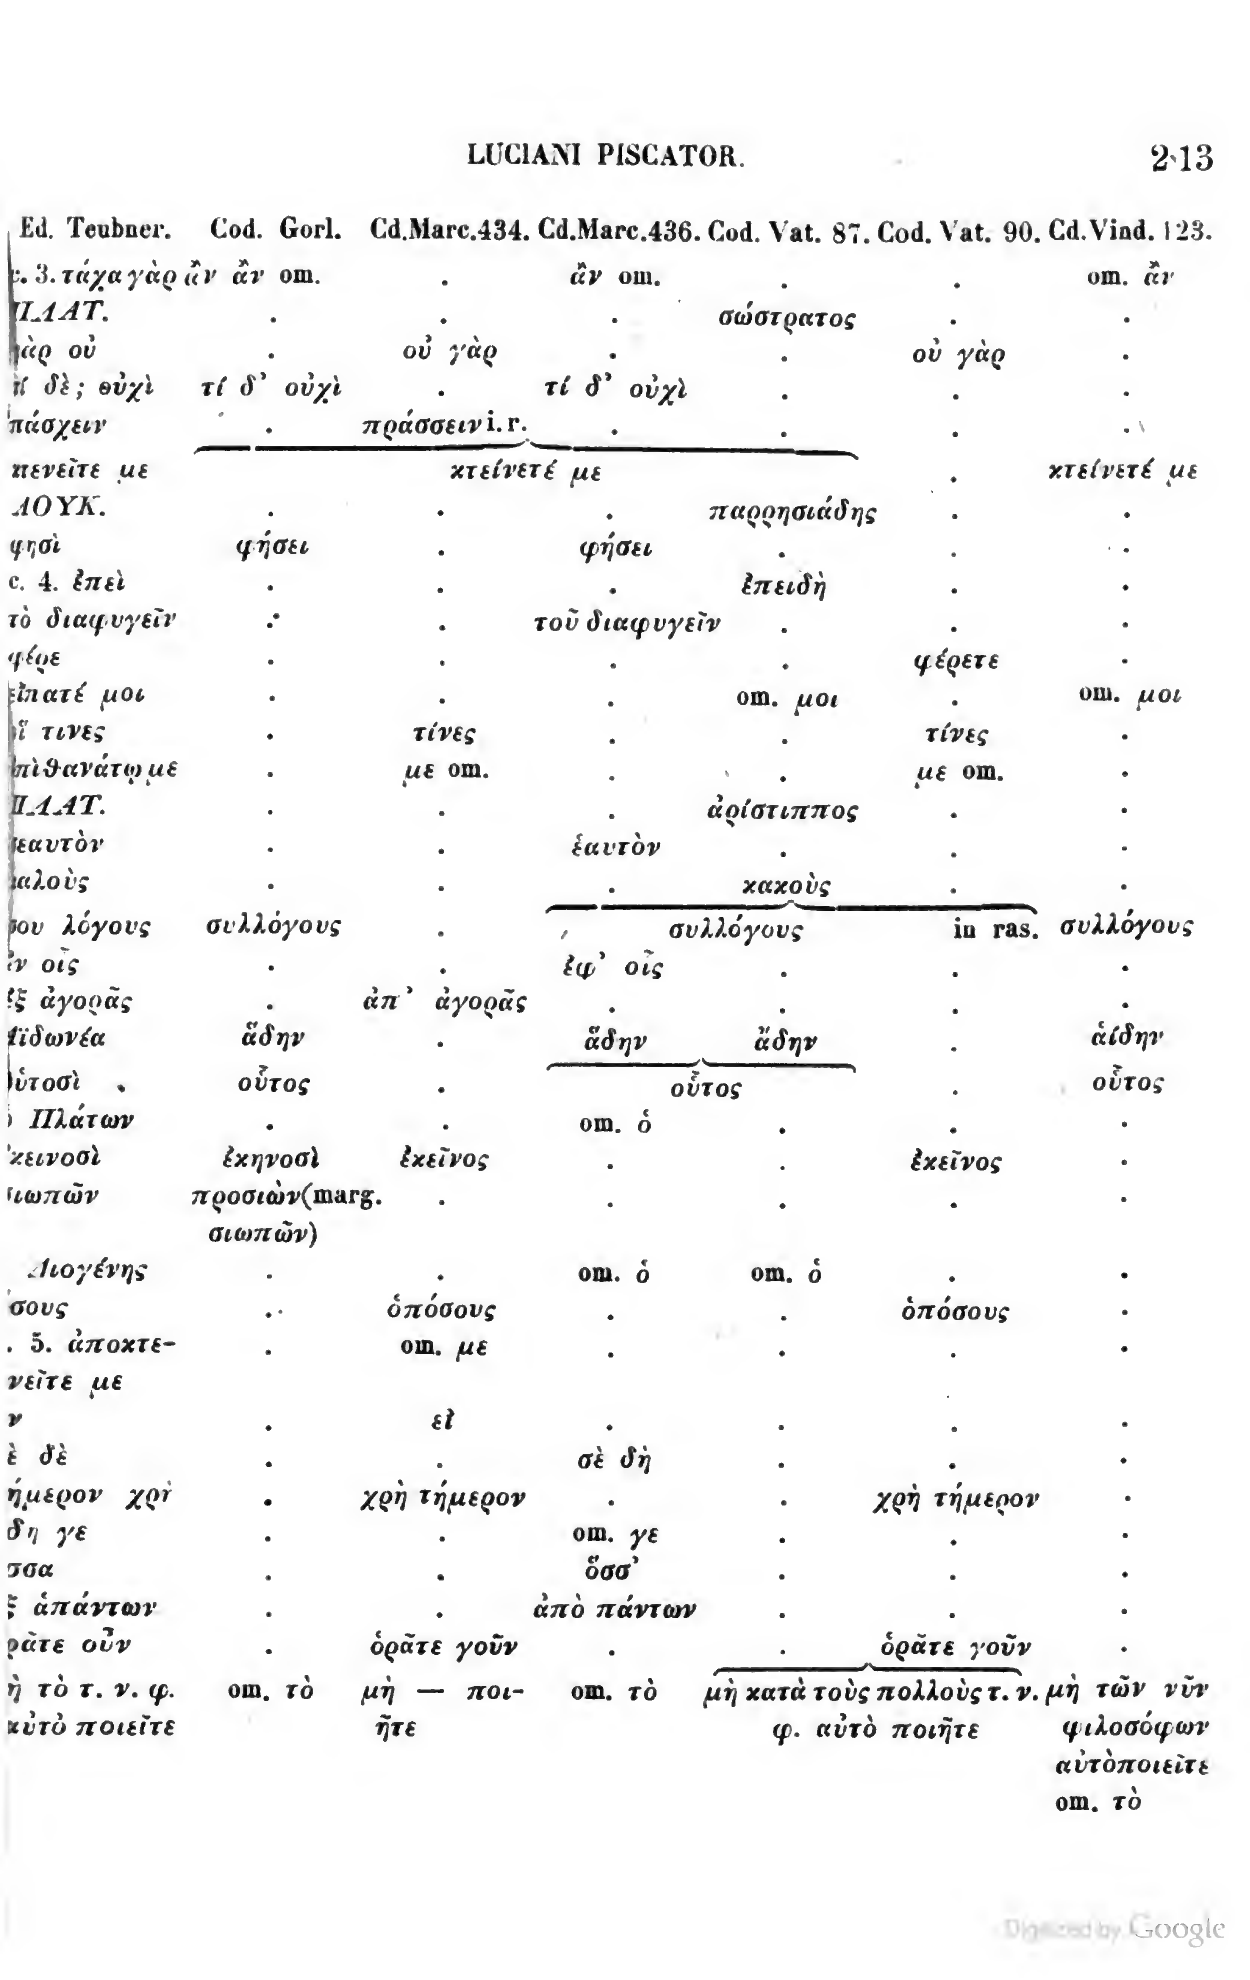 LUCIANI PISCATOR. 213
Ed. Teubner. Cod. Gorl. Cd.Marc.434. Cd.Marc.436. Cod. Vat. 87. Cod. Vat. 90. Cd.Vind. 123.
c. 3. τάχα γὰρ ἂν ἂν om. . ἂν om. . . om. ἂν
ΠΛΑΤ. . . . σώστρατος . .
γὰρ οὐ . οὐ γὰρ . . οὐ γὰρ .
τί δὲ; οὐχὶ τί δ' οὐχὶ . τί δ' οὐχὶ . . .
πάσχειν . πράσσειν i. r. . . . .
κτενεῖτε με κτείνετέ με . κτείνετέ με
ΛΟΥΚ. . . . παρρησιάδης . .
φησὶ φήσει . φήσει . . .
c. 4. ἐπεὶ . . . ἐπειδὴ . .
τὸ διαφυγεῖν . . τοῦ διαφυγεῖν . . .
φέρε . . . . φέρετε .
εἴπατέ μοι . . . om. μοι . om. μοι
οἵ τινες . τίνες . . τίνες .
ἐπὶ θανάτῳ με . με om. . . με om. .
ΠΛΑΤ. . . . ἀρίστιππος . .
σεαυτὸν . . ἑαυτὸν . . .
καλοὺς . . . κακοὺς . .
σου λόγους συλλόγους . συλλόγους in ras. συλλόγους
ἐν οἷς . . ἐφ' οἷς . . .
ἐξ ἀγορᾶς . ἀπ' ἀγορᾶς . . . .
Ἀϊδωνέα ἅδην . ἅδην ἄδην . ἀίδην
οὑτοσὶ . οὗτος . οὗτος . οὗτος
ὁ Πλάτων . . om. ὁ . . .
ἐκεινοσὶ ἐκηνοσὶ ἐκεῖνος . . ἐκεῖνος .
σιωπῶν προσιὼν (marg. . . . . .
σιωπῶν)
Διογένης . . om. ὁ om. ὁ . .
ὅσους . ὁπόσους . . ὁπόσους .
. 5. ἀποκτε- . om. με . . . .
νεῖτε με
ν . εἰ . . . .
ὲ δὲ . . σὲ δὴ . . .
ήμερον χρὴ . χρὴ τήμερον . . χρὴ τήμερον .
δη γε . . om. γε . . .
σσα . . ὅσσ' . . .
ξ ἁπάντων . . ἀπὸ πάντων . . .
ρᾶτε οὖν . ὁρᾶτε γοῦν . . ὁρᾶτε γοῦν .
ὴ τὸ τ. ν. φ. om. τὸ μὴ — ποι- om. τὸ μὴ κατὰ τοὺς πολλοὺς τ. ν. μὴ τῶν νῦν
αὐτὸ ποιεῖτε ῆτε φ. αὐτὸ ποιῆτε φιλοσόφων
αὐτὸ ποιεῖτε
om. τὸ
Digitized by Google